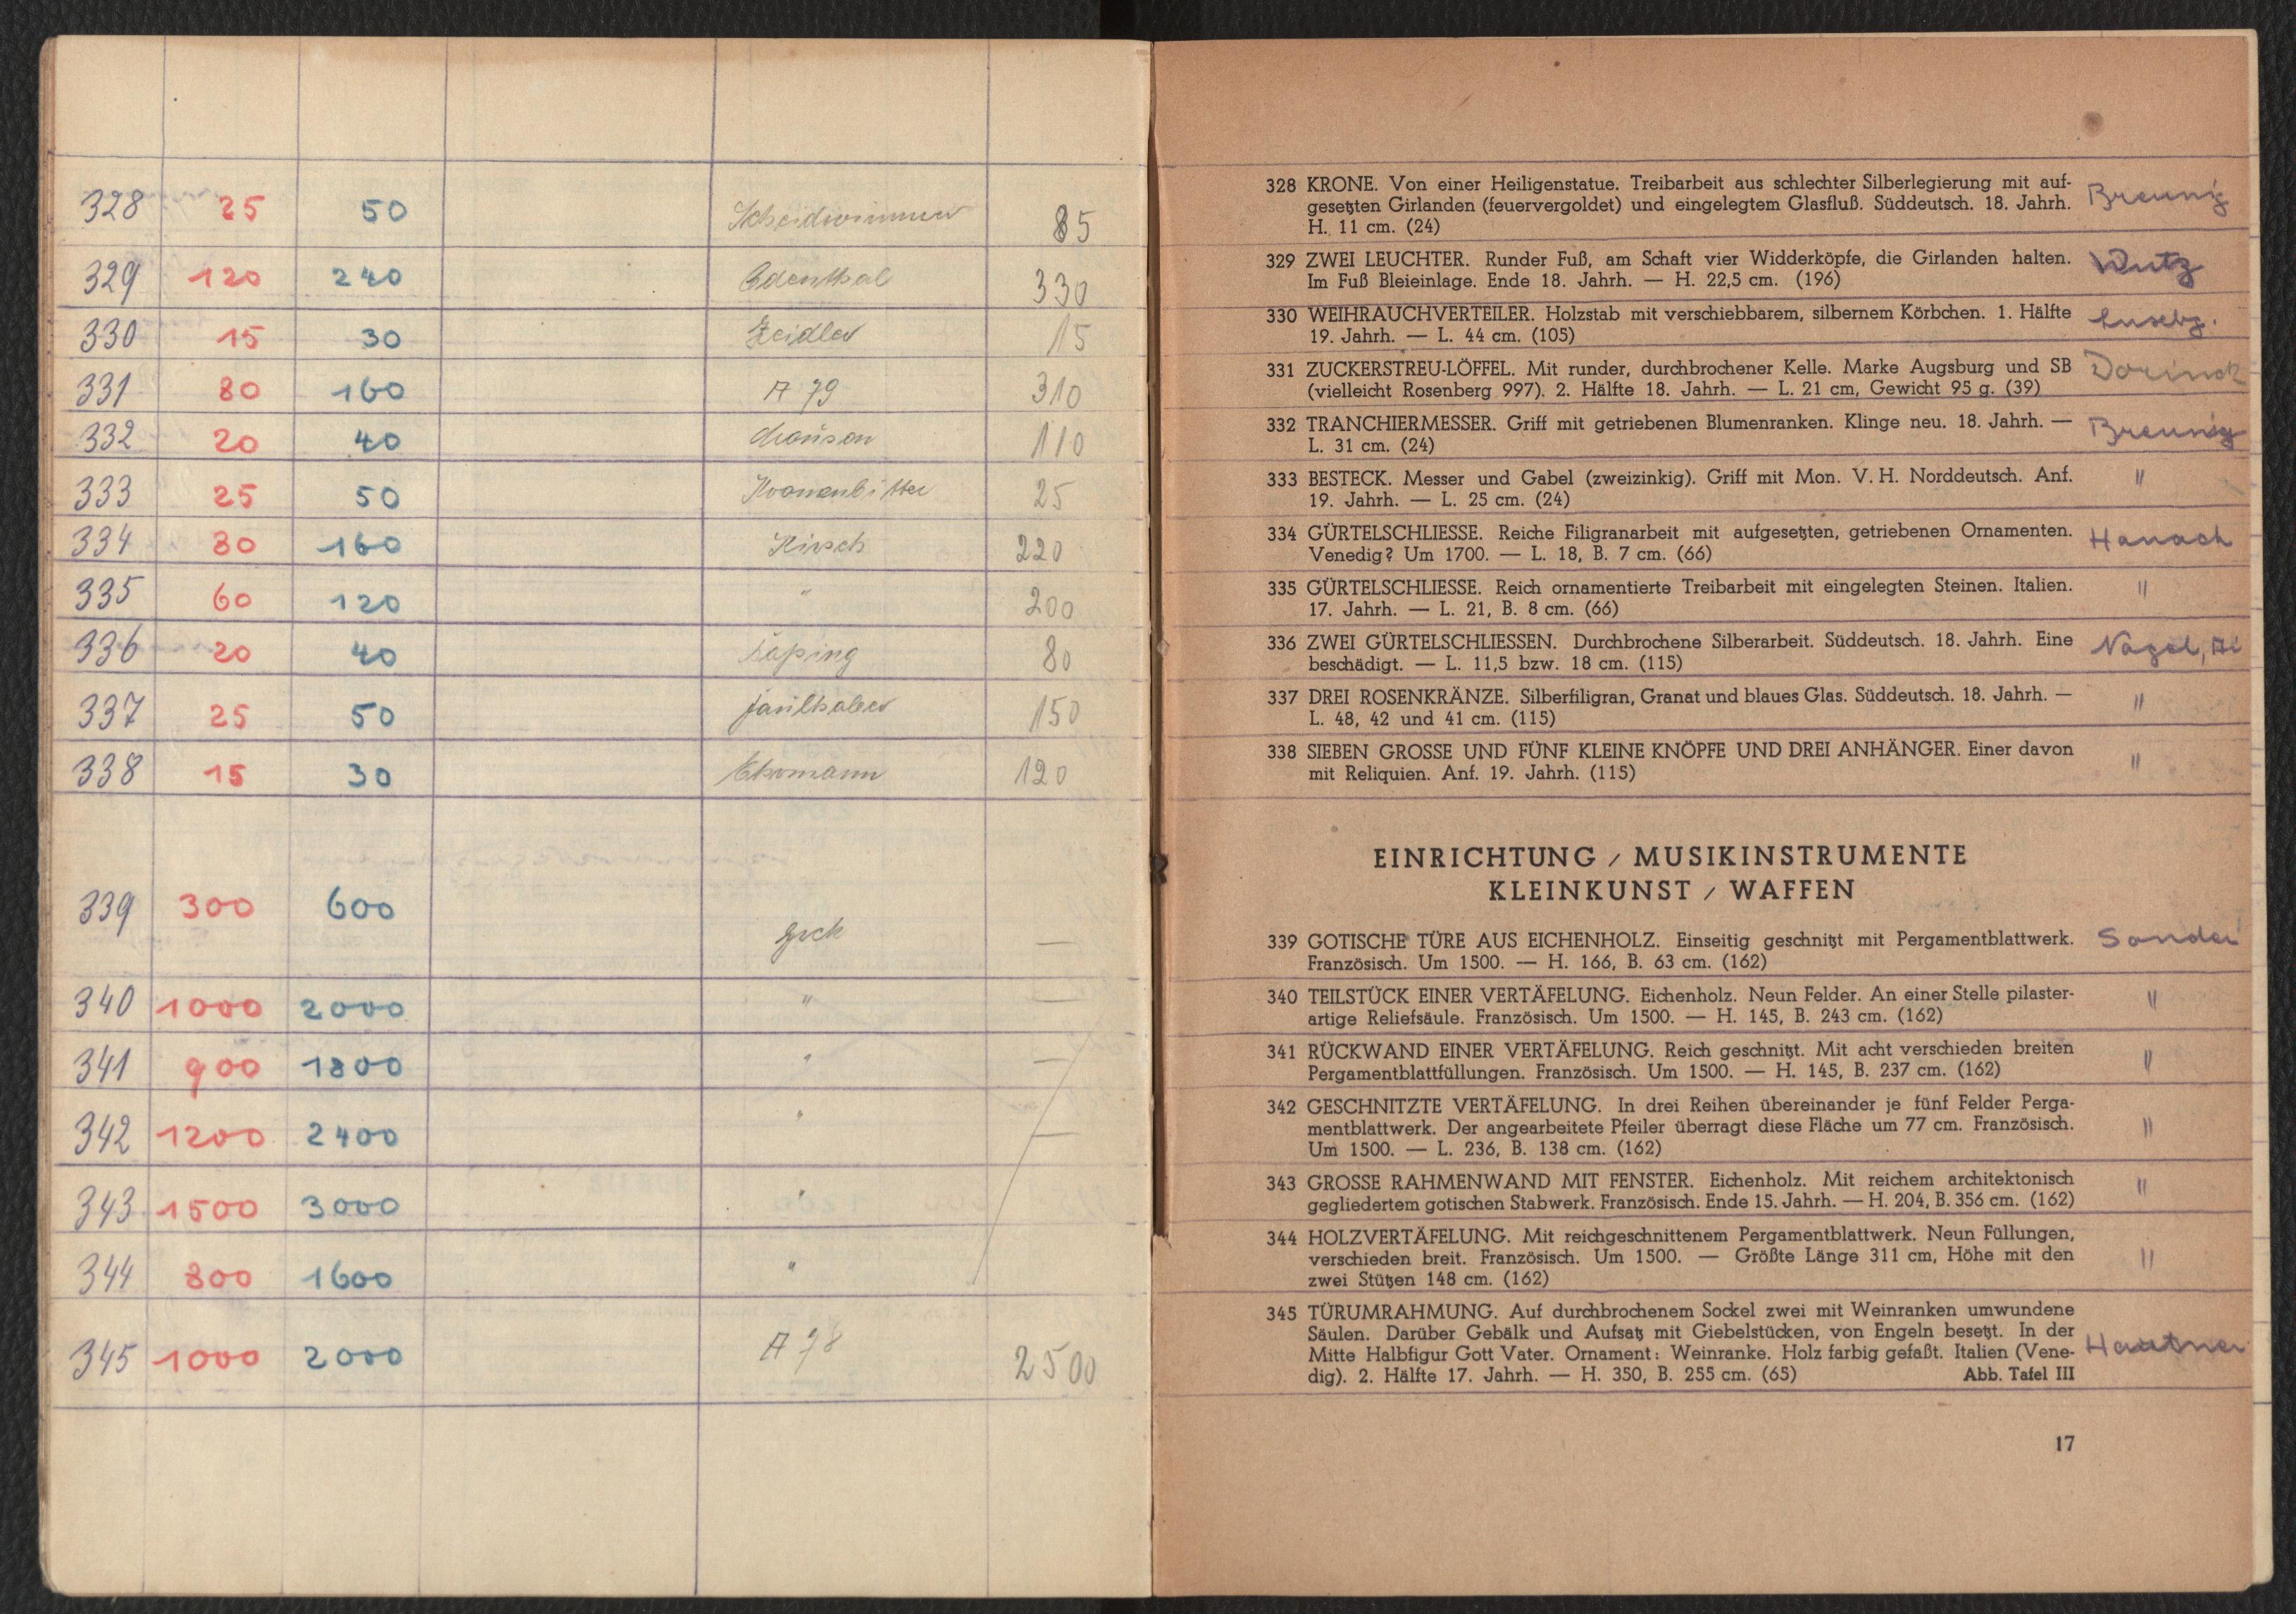 328 25 50 Scheidwimmer 85
329 120 240 Odenthal 330
330 15 30 Zeidler 15
331 80 160 A 79 310
332 20 40 110
333 25 50 Kronenbitter 25
334 80 160 Hirsch 220
335 60 120 " 200
336 20 40 80
337 25 50 150
338 15 30 Ehrmann 120
339 300 600 —
340 1000 2000 " —
341 900 1800 " —
342 1200 2400 " —
343 1500 3000 "
344 800 1600 "
345 1000 2000 A 78 2500
328 KRONE. Von einer Heiligenstatue. Treibarbeit aus schlechter Silberlegierung mit auf-
gesetzten Girlanden (feuervergoldet) und eingelegtem Glasfluß. Süddeutsch. 18. Jahrh. Breunig
H. 11 cm. (24)
329 ZWEI LEUCHTER. Runder Fuß, am Schaft vier Widderköpfe, die Girlanden halten. Wutz
Im Fuß Bleieinlage. Ende 18. Jahrh. — H. 22,5 cm. (196)
330 WEIHRAUCHVERTEILER. Holzstab mit verschiebbarem, silbernem Körbchen. 1. Hälfte
19. Jahrh. — L. 44 cm. (105)
331 ZUCKERSTREU-LÖFFEL. Mit runder, durchbrochener Kelle. Marke Augsburg und SB
(vielleicht Rosenberg 997). 2. Hälfte 18. Jahrh. — L. 21 cm, Gewicht 95 g. (39)
332 TRANCHIERMESSER. Griff mit getriebenen Blumenranken. Klinge neu. 18. Jahrh. — Breunig
L. 31 cm. (24)
333 BESTECK. Messer und Gabel (zweizinkig). Griff mit Mon. V. H. Norddeutsch. Anf. "
19. Jahrh. — L. 25 cm. (24)
334 GÜRTELSCHLIESSE. Reiche Filigranarbeit mit aufgesetzten, getriebenen Ornamenten. Hanach
Venedig? Um 1700. — L. 18, B. 7 cm. (66)
335 GÜRTELSCHLIESSE. Reich ornamentierte Treibarbeit mit eingelegten Steinen. Italien. "
17. Jahrh. — L. 21, B. 8 cm. (66)
336 ZWEI GÜRTELSCHLIESSEN. Durchbrochene Silberarbeit. Süddeutsch. 18. Jahrh. Eine Nagel,
beschädigt. — L. 11,5 bzw. 18 cm. (115)
337 DREI ROSENKRÄNZE. Silberfiligran, Granat und blaues Glas. Süddeutsch. 18. Jahrh. — "
L. 48, 42 und 41 cm. (115)
338 SIEBEN GROSSE UND FÜNF KLEINE KNÖPFE UND DREI ANHÄNGER. Einer davon
mit Reliquien. Anf. 19. Jahrh. (115) "
EINRICHTUNG / MUSIKINSTRUMENTE
KLEINKUNST / WAFFEN
339 GOTISCHE TÜRE AUS EICHENHOLZ. Einseitig geschnitzt mit Pergamentblattwerk. Sander
Französisch. Um 1500. — H. 166, B. 63 cm. (162)
340 TEILSTÜCK EINER VERTÄFELUNG. Eichenholz. Neun Felder. An einer Stelle pilaster- "
artige Reliefsäule. Französisch. Um 1500. — H. 145, B. 243 cm. (162)
341 RÜCKWAND EINER VERTÄFELUNG. Reich geschnitzt. Mit acht verschieden breiten "
Pergamentblattfüllungen. Französisch. Um 1500. — H. 145, B. 237 cm. (162)
342 GESCHNITZTE VERTÄFELUNG. In drei Reihen übereinander je fünf Felder Perga-
mentblattwerk. Der angearbeitete Pfeiler überragt diese Fläche um 77 cm. Französisch. "
Um 1500. — L. 236, B. 138 cm. (162)
343 GROSSE RAHMENWAND MIT FENSTER. Eichenholz. Mit reichem architektonisch "
gegliedertem gotischen Stabwerk. Französisch. Ende 15. Jahrh. — H. 204, B. 356 cm. (162)
344 HOLZVERTÄFELUNG. Mit reichgeschnittenem Pergamentblattwerk. Neun Füllungen,
verschieden breit. Französisch. Um 1500. — Größte Länge 311 cm, Höhe mit den "
zwei Stützen 148 cm. (162)
345 TÜRUMRAHMUNG. Auf durchbrochenem Sockel zwei mit Weinranken umwundene
Säulen. Darüber Gebälk und Aufsatz mit Giebelstücken, von Engeln besetzt. In der
Mitte Halbfigur Gott Vater. Ornament: Weinranke. Holz farbig gefaßt. Italien (Vene- Hautner
dig). 2. Hälfte 17. Jahrh. — H. 350, B. 255 cm. (65) Abb. Tafel III
17